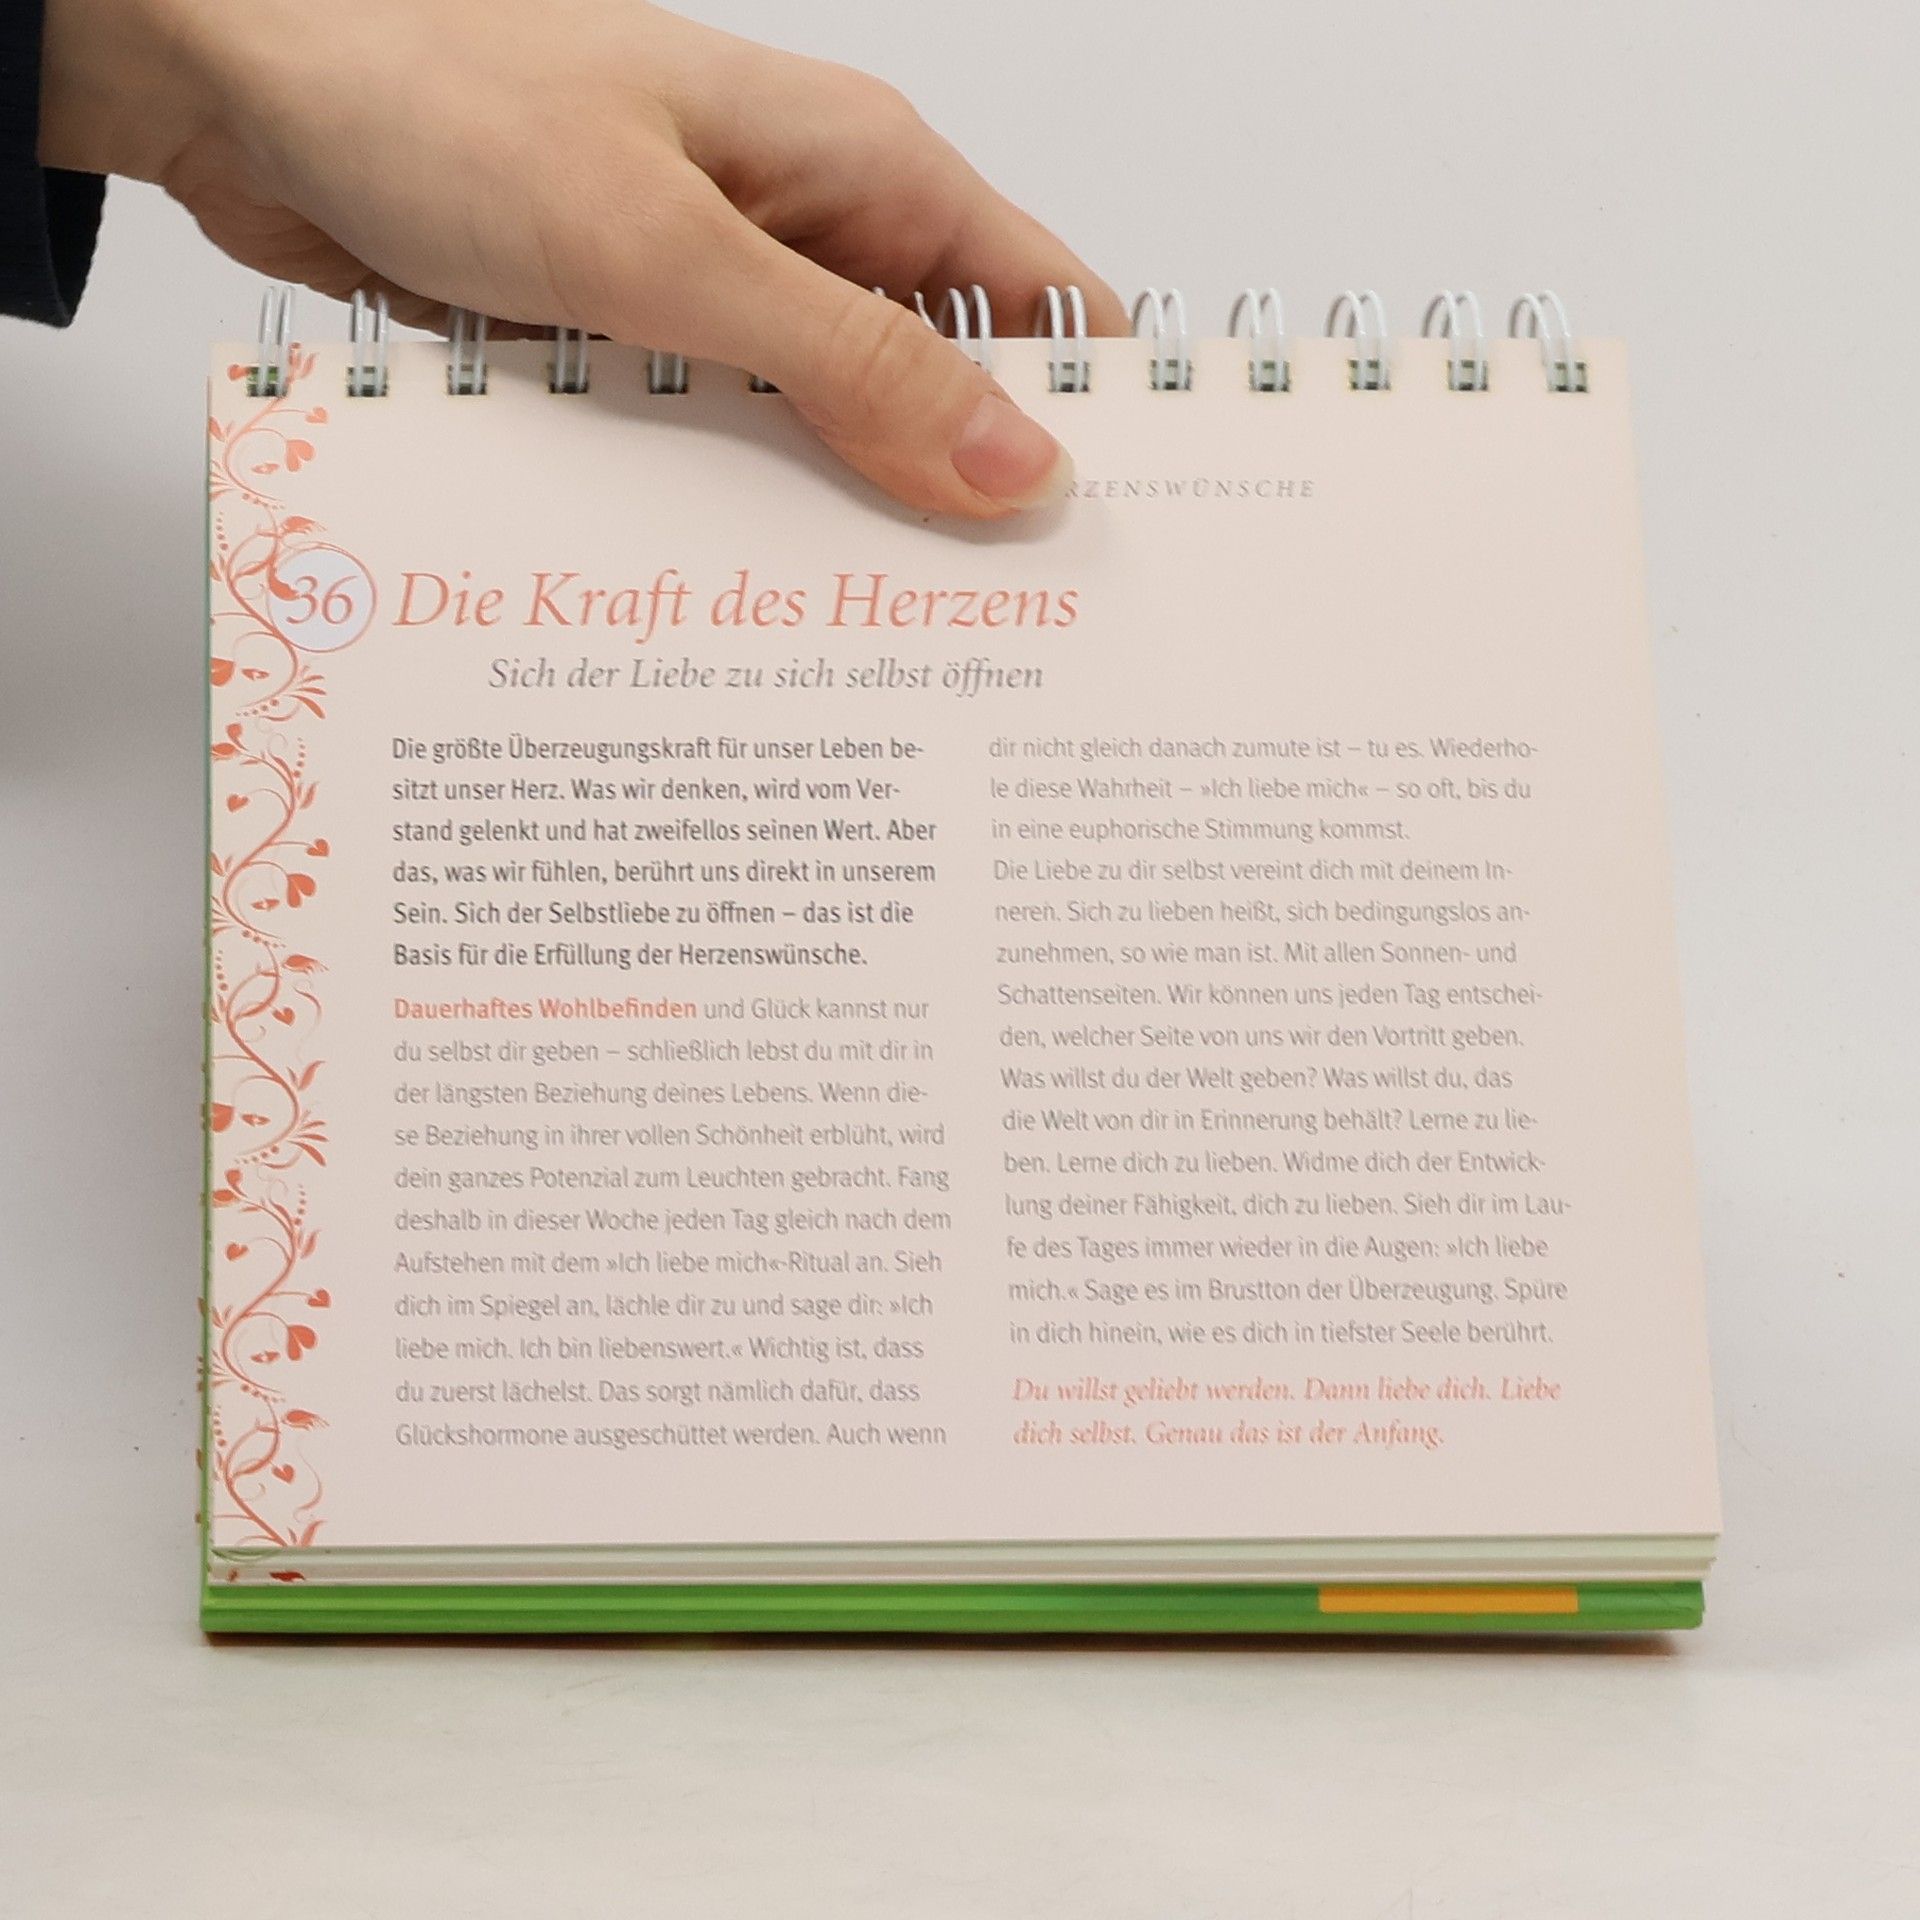 RZENSWÜNSCHE
36
Die Kraft des Herzens
Sich der Liebe zu sich selbst öffnen
Die größte Überzeugungskraft für unser Leben be-
sitzt unser Herz. Was wir denken, wird vom Ver-
stand gelenkt und hat zweifellos seinen Wert. Aber
das, was wir fühlen, berührt uns direkt in unserem
Sein. Sich der Selbstliebe zu öffnen – das ist die
Basis für die Erfüllung der Herzenswünsche.
Dauerhaftes Wohlbefinden und Glück kannst nur
du selbst dir geben – schließlich lebst du mit dir in
der längsten Beziehung deines Lebens. Wenn die-
se Beziehung in ihrer vollen Schönheit erblüht, wird
dein ganzes Potenzial zum Leuchten gebracht. Fang
deshalb in dieser Woche jeden Tag gleich nach dem
Aufstehen mit dem »Ich liebe mich«-Ritual an. Sieh
dich im Spiegel an, lächle dir zu und sage dir: »Ich
liebe mich. Ich bin liebenswert.« Wichtig ist, dass
du zuerst lächelst. Das sorgt nämlich dafür, dass
Glückshormone ausgeschüttet werden. Auch wenn
dir nicht gleich danach zumute ist – tu es. Wiederho-
le diese Wahrheit – »Ich liebe mich« – so oft, bis du
in eine euphorische Stimmung kommst.
Die Liebe zu dir selbst vereint dich mit deinem In-
neren. Sich zu lieben heißt, sich bedingungslos an-
zunehmen, so wie man ist. Mit allen Sonnen- und
Schattenseiten. Wir können uns jeden Tag entschei-
den, welcher Seite von uns wir den Vortritt geben.
Was willst du der Welt geben? Was willst du, das
die Welt von dir in Erinnerung behält? Lerne zu lie-
ben. Lerne dich zu lieben. Widme dich der Entwick-
lung deiner Fähigkeit, dich zu lieben. Sieh dir im Lau-
fe des Tages immer wieder in die Augen: »Ich liebe
mich.« Sage es im Brustton der Überzeugung. Spüre
in dich hinein, wie es dich in tiefster Seele berührt.
Du willst geliebt werden. Dann liebe dich. Liebe
dich selbst. Genau das ist der Anfang.